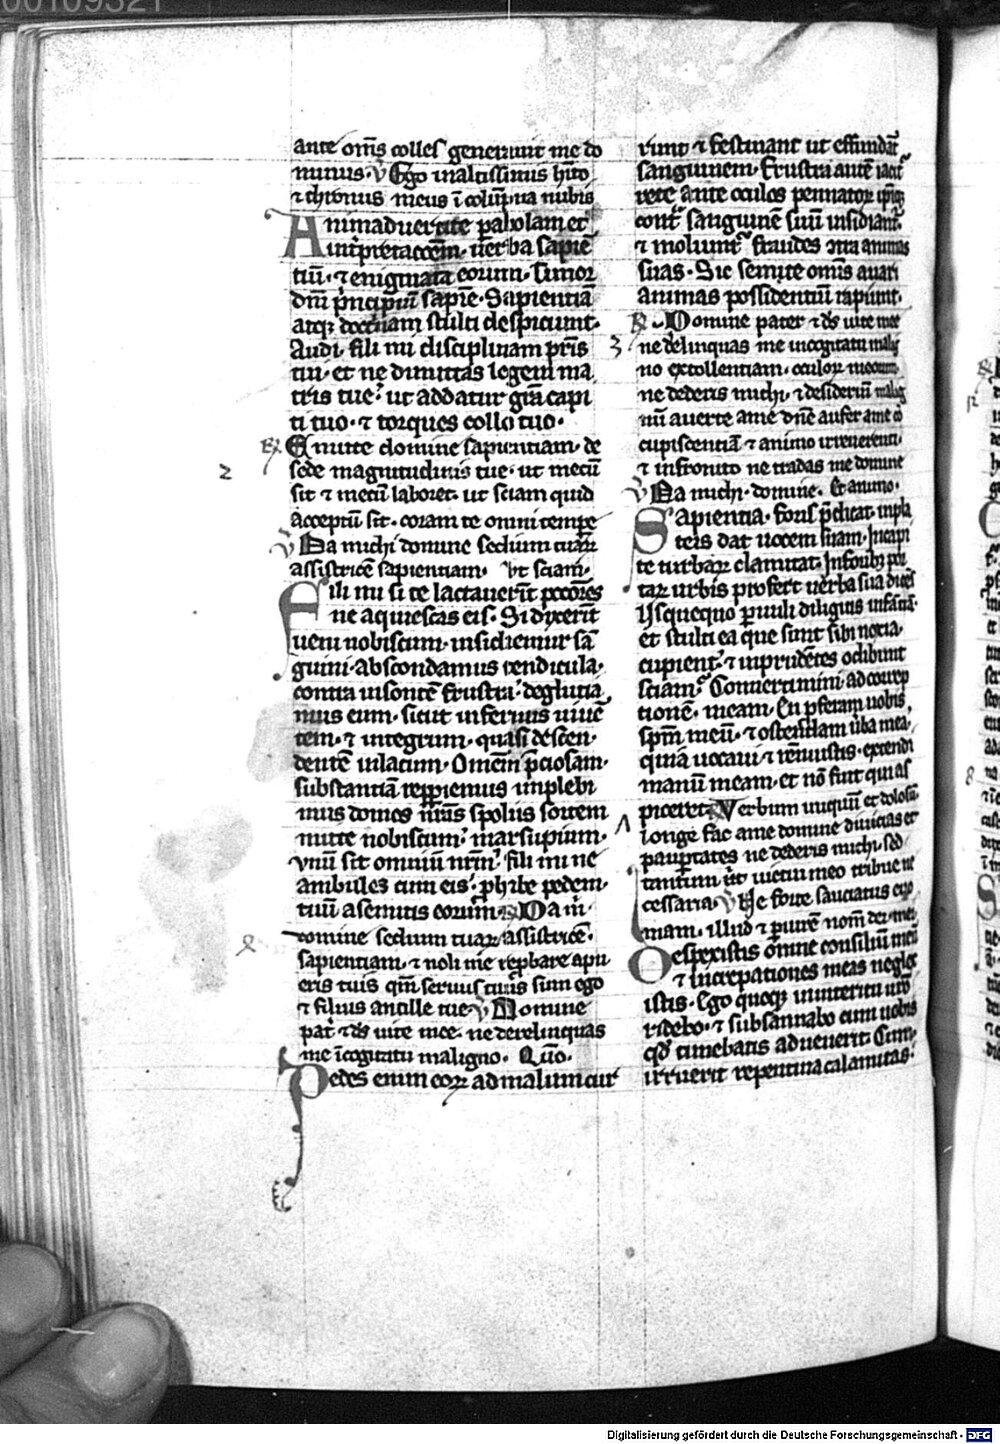 00109321
ante om̄s colles generauit me do
minus. v̾ Ego in altissimis hito
⁊ thronus meus ī colūpna nubis
Animaduertite pabolam et
int̾pretacōem. uerba sapiē
tiū. ⁊ enigmata eorum. Timor
dn̄i p̄ncipiū sapīe. Sapientiā
atq; doct̾nam stulti despiciunt.
Audi. fili mi disciplinam pr̄is
tui. et ne dimittas legem ma
tris tue. ut addatur grā capi
ti tuo. ⁊ torques collo tuo.
2
℟ Emitte domine sapientiam. de
sede magnitudinis tue. ut mecū
sit ⁊ mecū laboret. ut sciam quid
acceptū sit. coram te omni tempe
v̾ Da michi domine sedium tuaꝝ
assistricē sapientiam. Vt sciam.
Fili mi si te lactauerīt pccōres
ne aquiescas eis. Si dixerīt
ueni nobiscum. insidiemur sā
guini. abscondamus tendicula.
contra insontē frustra. deglutia
mus eum. sicut infernus uiuē
tem. ⁊ integrum. quasi descen
dentē in lacum. Omēm p̄ciosam.
substantiā repp̄iemus implebi
mus domos nr̄as spoliis sortem
mitte nobiscum. marsupium.
vnū sit omniū nrm̄. fili mi ne
ambules cum eis. phibe pedem.
tuū a semitis eorum. ℟ Da m̄
domine sedium tuaꝝ assistricē.
sapientiam. ⁊ noli me repbare a pu
eris tuis qm̄ seruus tuus sum ego
⁊ filius ancille tue v̾ Domine
pat̾ ⁊ ds̄ uite mee. ne derelinquas
me ī cogitatu maligno. Qūo.
Pedes enim eoꝝ ad malum cur
runt ⁊ festinant ut effundāt
sanguinem. Frustra autē iacit̾
rete ante oculos pennatoꝝ ip̄iq;
cont̾ sanguinē suū insidiant̾.
⁊ moliunt̾ fraudes cōtra animas
suas. Sic semite om̄is auari
animas possidentiū rapiunt.
℟ Domine pater ⁊ ds̄ uite mee
3
ne delinquas me in cogitatu malig
no extollentiam. oculoꝝ meorum.
ne dederis michi. ⁊ desideriū malig
nū auerte a me dn̄e aufer a me cō
cupiscentiā ⁊ animo irreuerenti.
⁊ infronito ne tradas me domine
v̾ Da michi. domine. Et animo.
Sapientia. foris p̄dicat. in pla
teis dat uocem suam. In capi
te turbaꝝ clamitat. In foribꝫ por
taꝝ urbis profert uerba sua dicēs
Usquequo paruuli diligitis infātiā.
et stulti ea que sunt sibi noxia.
cupient. ⁊ inprudētes odibunt
sciam. Conuertimini. ad correp
tionē. meam. En pferam uobis,
spm̄ meū. ⁊ ostendam ūba mea.
quia uocaui ⁊ rēnuistis. extendi
manū meam. et nō fuit qui as
piceret. ℟ Verbum iniquū et dolosū.
longe fac a me domine diuicias et
paup̄tates ne dederis michi. sed
tantum ūt uictui meo tribue ne
cessaria v̾ Ne forte saciatus
illud ⁊ piurē nom̄ dei mei
Despexistis om̄e consiliū meū
⁊ increpationes meas neglex
istis. Ego quoq; in interitu ur̄o
ridebo. ⁊ subsannabo cum uobis
qd̾ timebatis aduenerit. Cum
irruerit repentina calamitas.
Digitalisierung gefördert durch die Deutsche Forschungsgemeinschaft - DFG